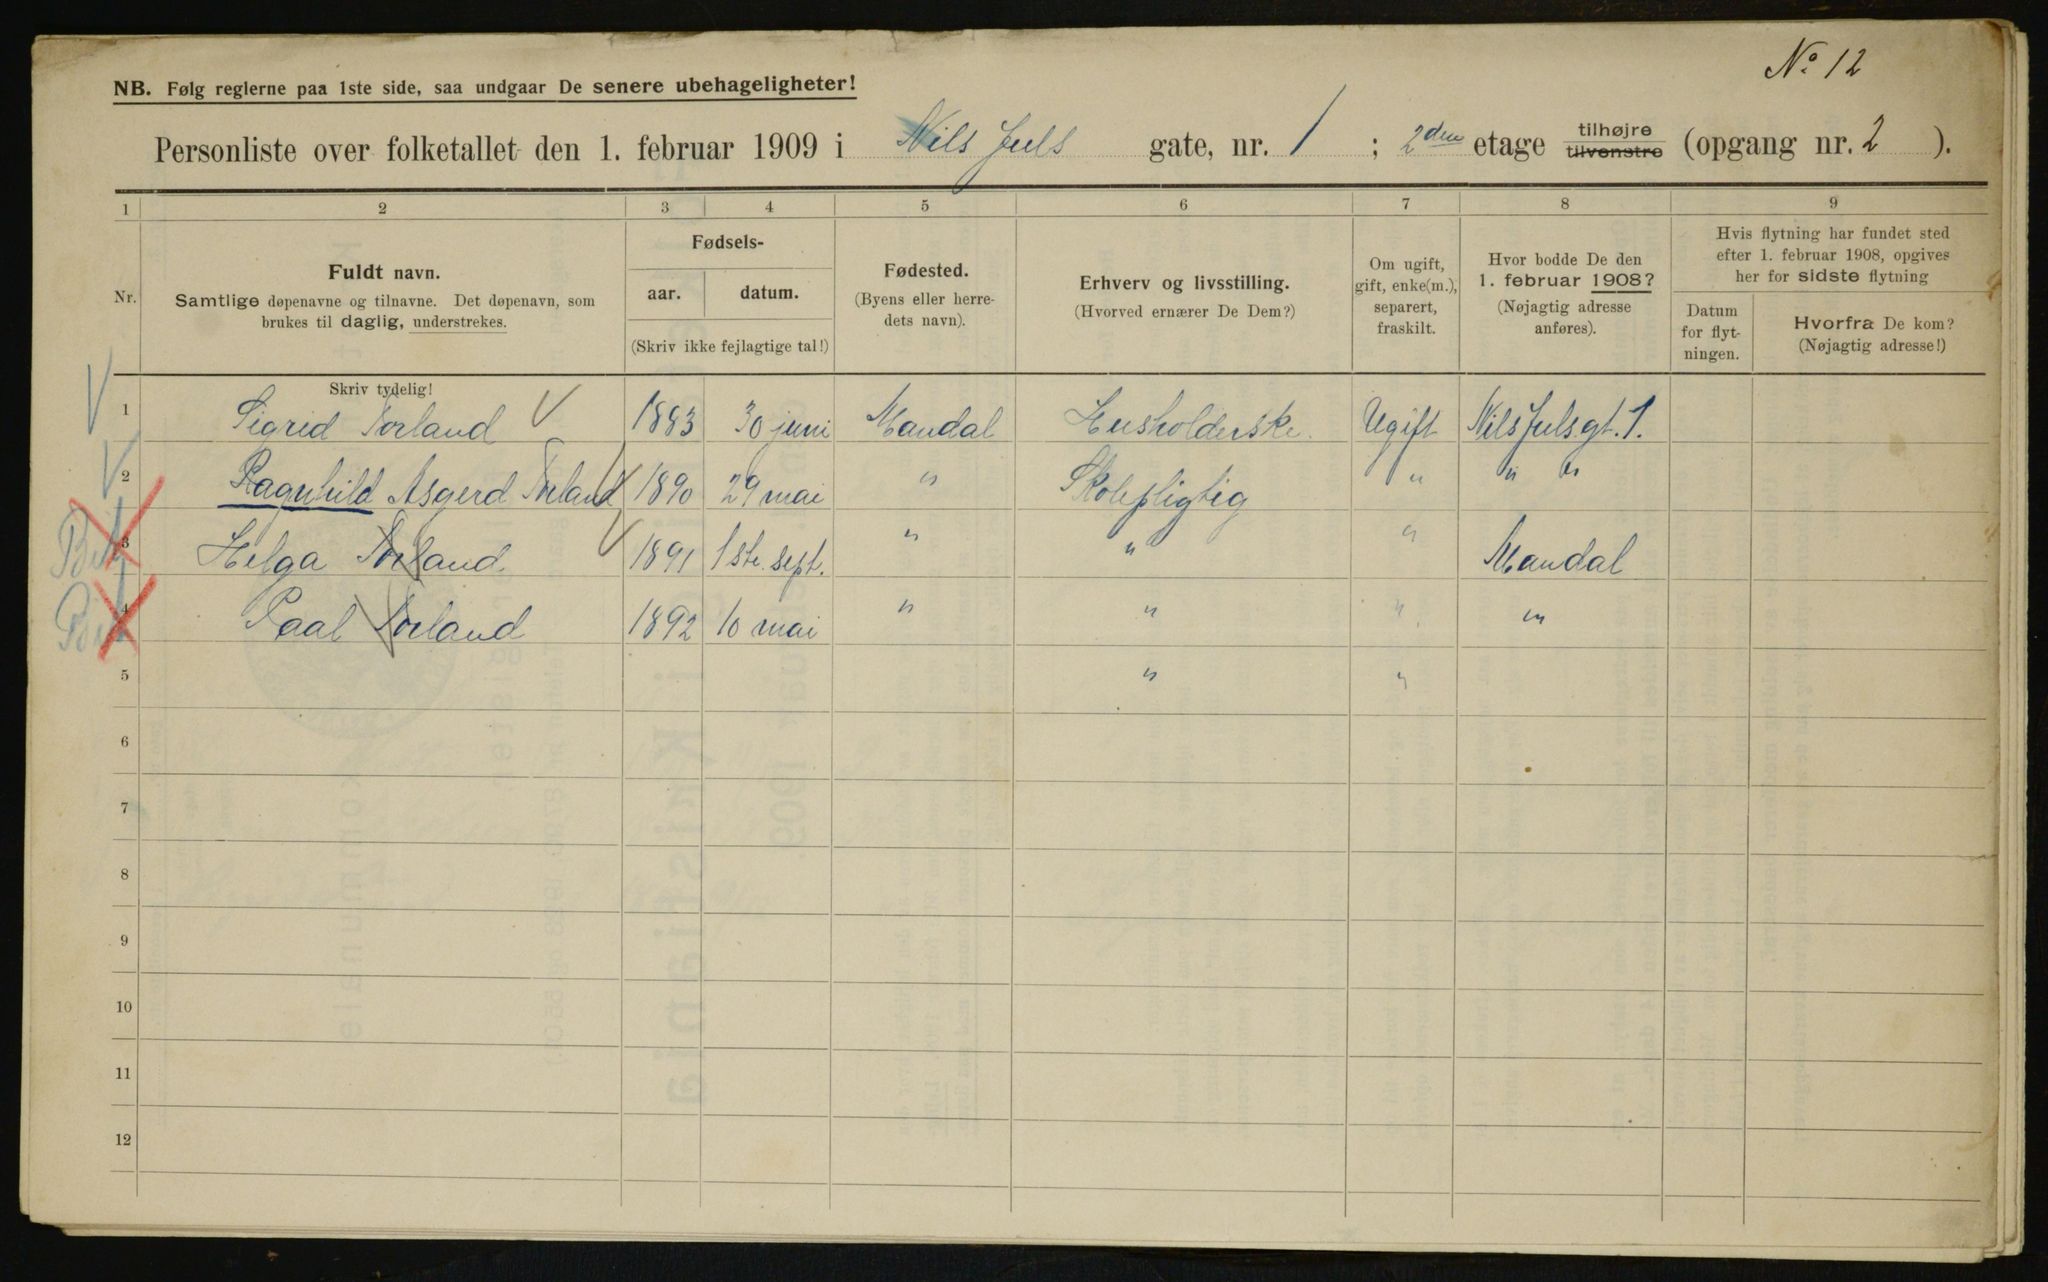 No 12
NB. Følg reglerne paa 1ste side, saa undgaar De senere ubehageligheter!
Personliste over folketallet den 1. februar 1909 i Nils Juls gate, nr. 1 ; 2den etage tilhøjre tilvenstre (opgang nr. 2 ).
1 2 3 4 5 6 7 8 9
Nr.
Fuldt navn.
Samtlige døpenavne og tilnavne. Det døpenavn, som
brukes til daglig, understrekes.
Fødsels-
aar. datum.
(Skriv ikke fejlagtige tal!)
Fødested.
(Byens eller herre-
dets navn).
Erhverv og livsstilling.
(Hvorved ernærer De Dem?)
Om ugift,
gift, enke(m.),
separert,
fraskilt.
Hvor bodde De den
1. februar 1908?
(Nøjagtig adresse
anføres).
Hvis flytning har fundet sted
efter 1. februar 1908, opgives
her for sidste flytning
Datum
for flyt-
ningen.
Hvorfra De kom?
(Nøjagtig adresse!)
Skriv tydelig!
1 Sigrid Torland 1883 30 juni Mandal Husholderske. Ugift Nils Juls gt. 1.
2 Ragnhild Asgerd Torland 1890 29 mai " Skolepligtig " " "
3 Helga Torland. 1891 1ste. sept. " " " Mandal
4 Paal Torland 1892 10 mai " " " "
5 " "
6
7
8
9
10
11
12